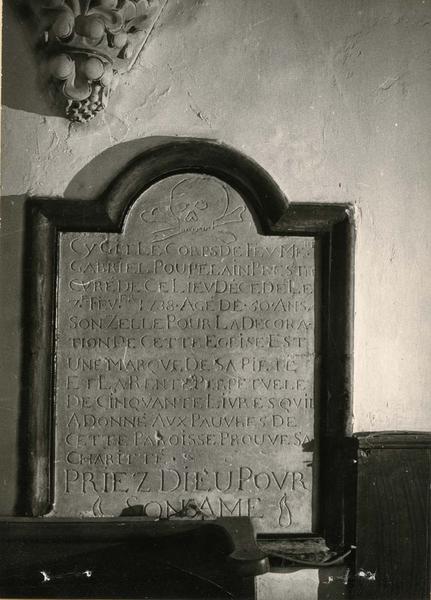 CY GIT LE CORPS DE FEV ME.
GABRIEL POUPELAIN PRESTRE
CVRÉ DE CE LIEV DECEDÉ LE
FEVR. 1738. AGÉ DE 50 ANS.
SON ZELLE POUR LA DECORA
TION DE CETTE EGLISE EST
UNE MARQVE DE SA PIETÉ
ET LA RENTE PERPETVELE
DE CINQVANTE LIVRES QV'IL
A DONNÉ AVX PAUVRES DE
CETTE PAROISSE PROUVE SA
CHARITTÉ.
PRIEZ DIEU POVR
SON AME